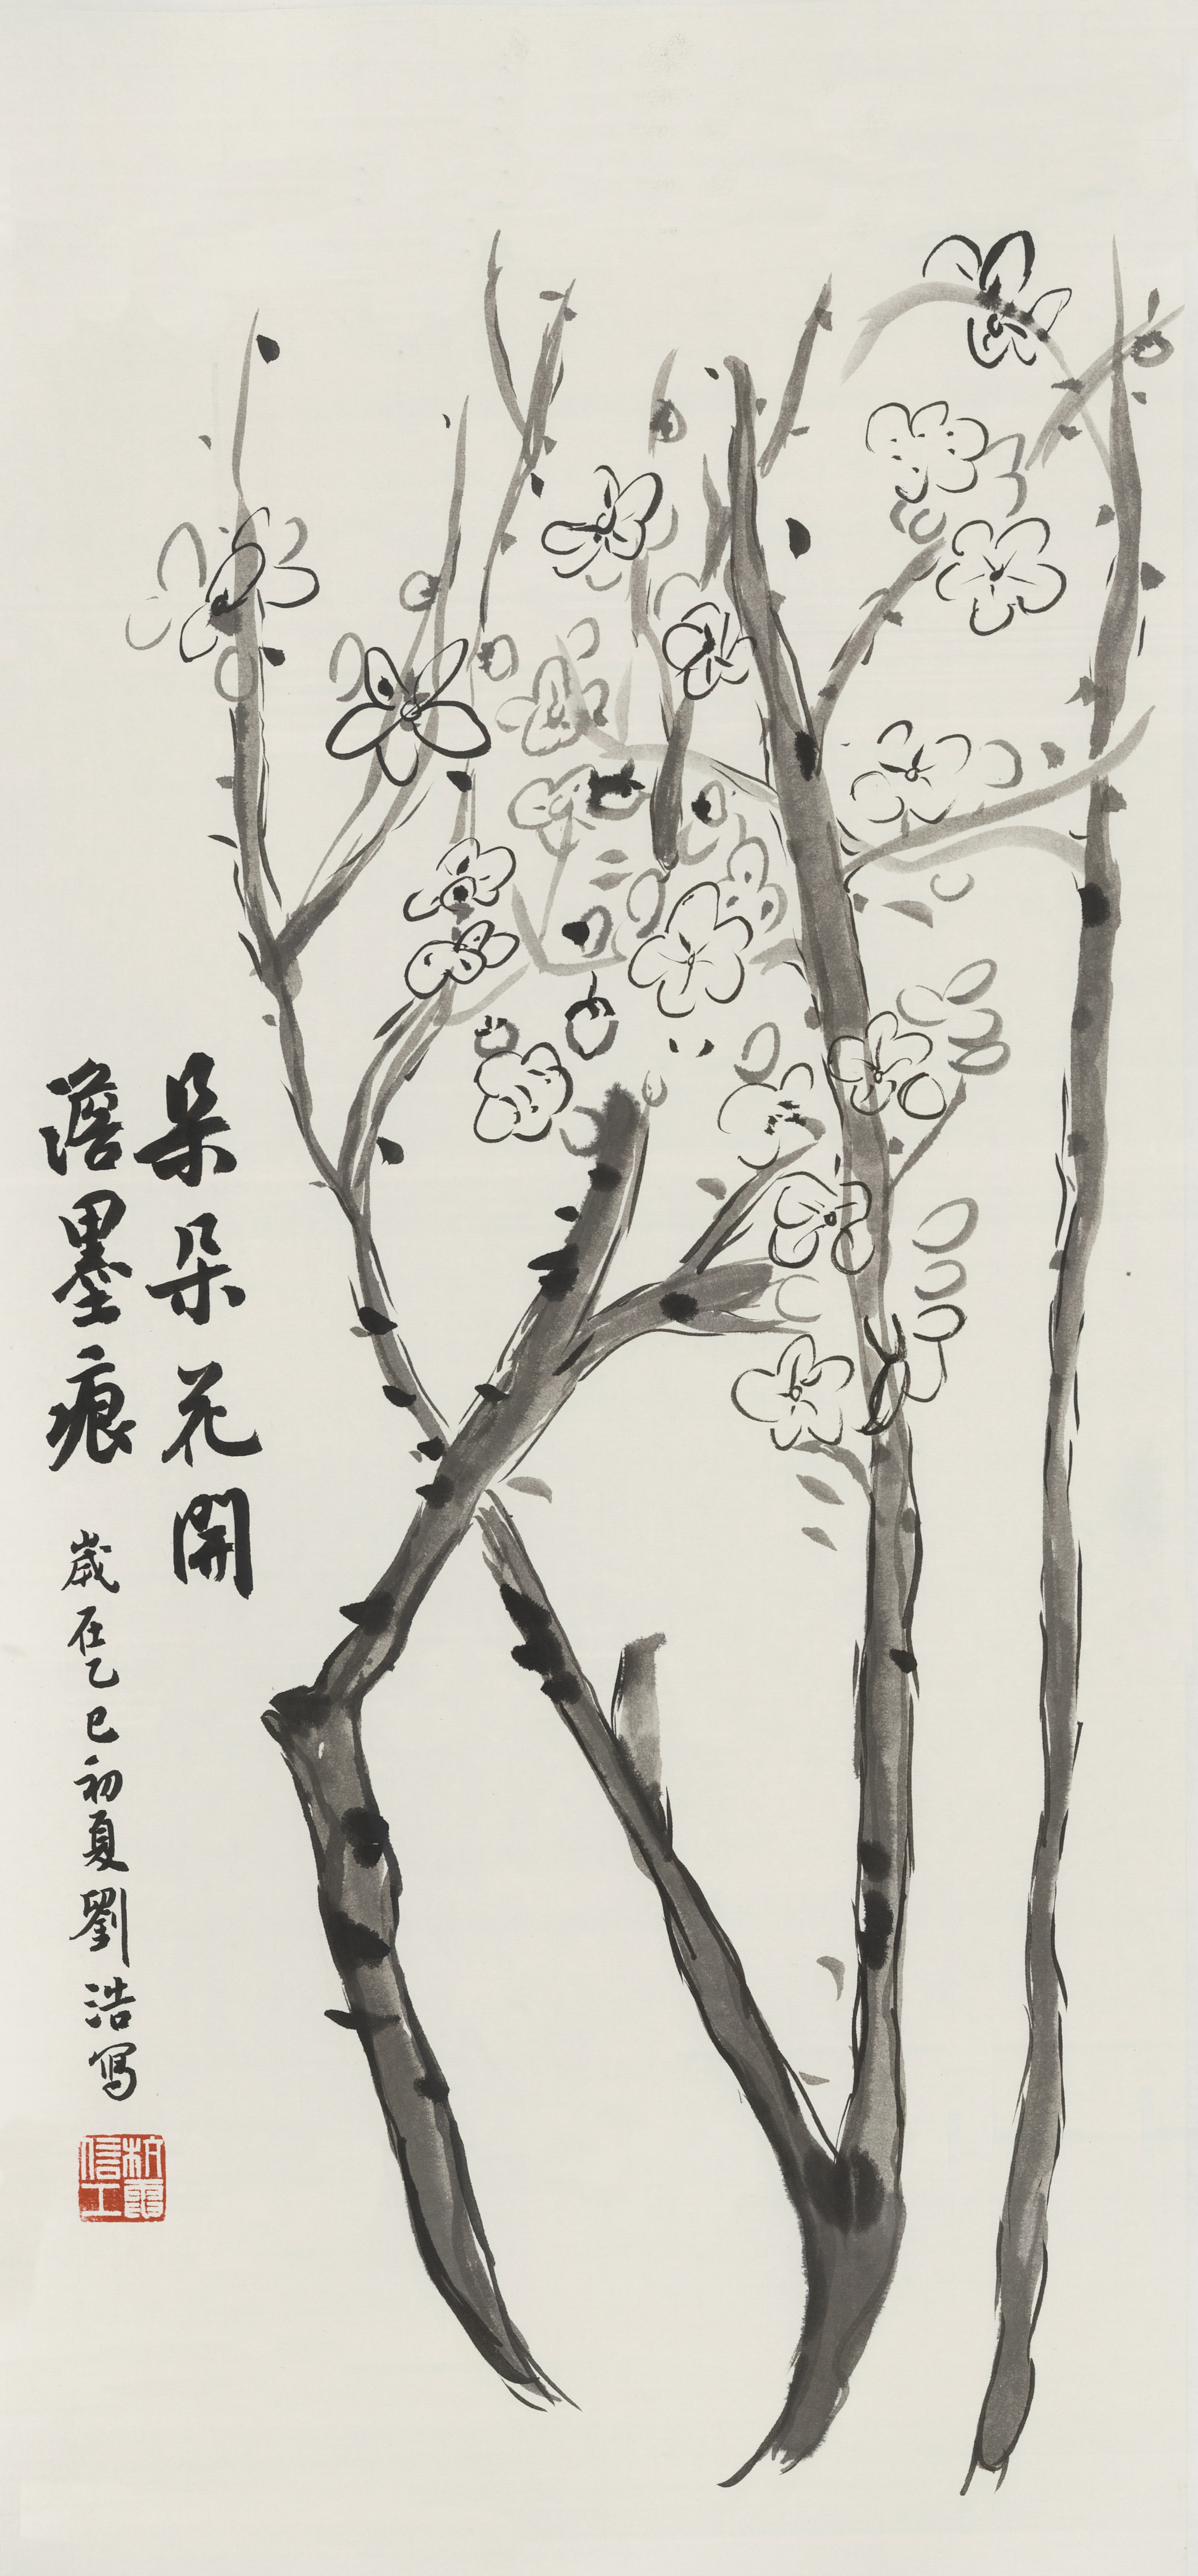 朵朵花開
澹墨痕
歲在乙巳初夏劉浩寫